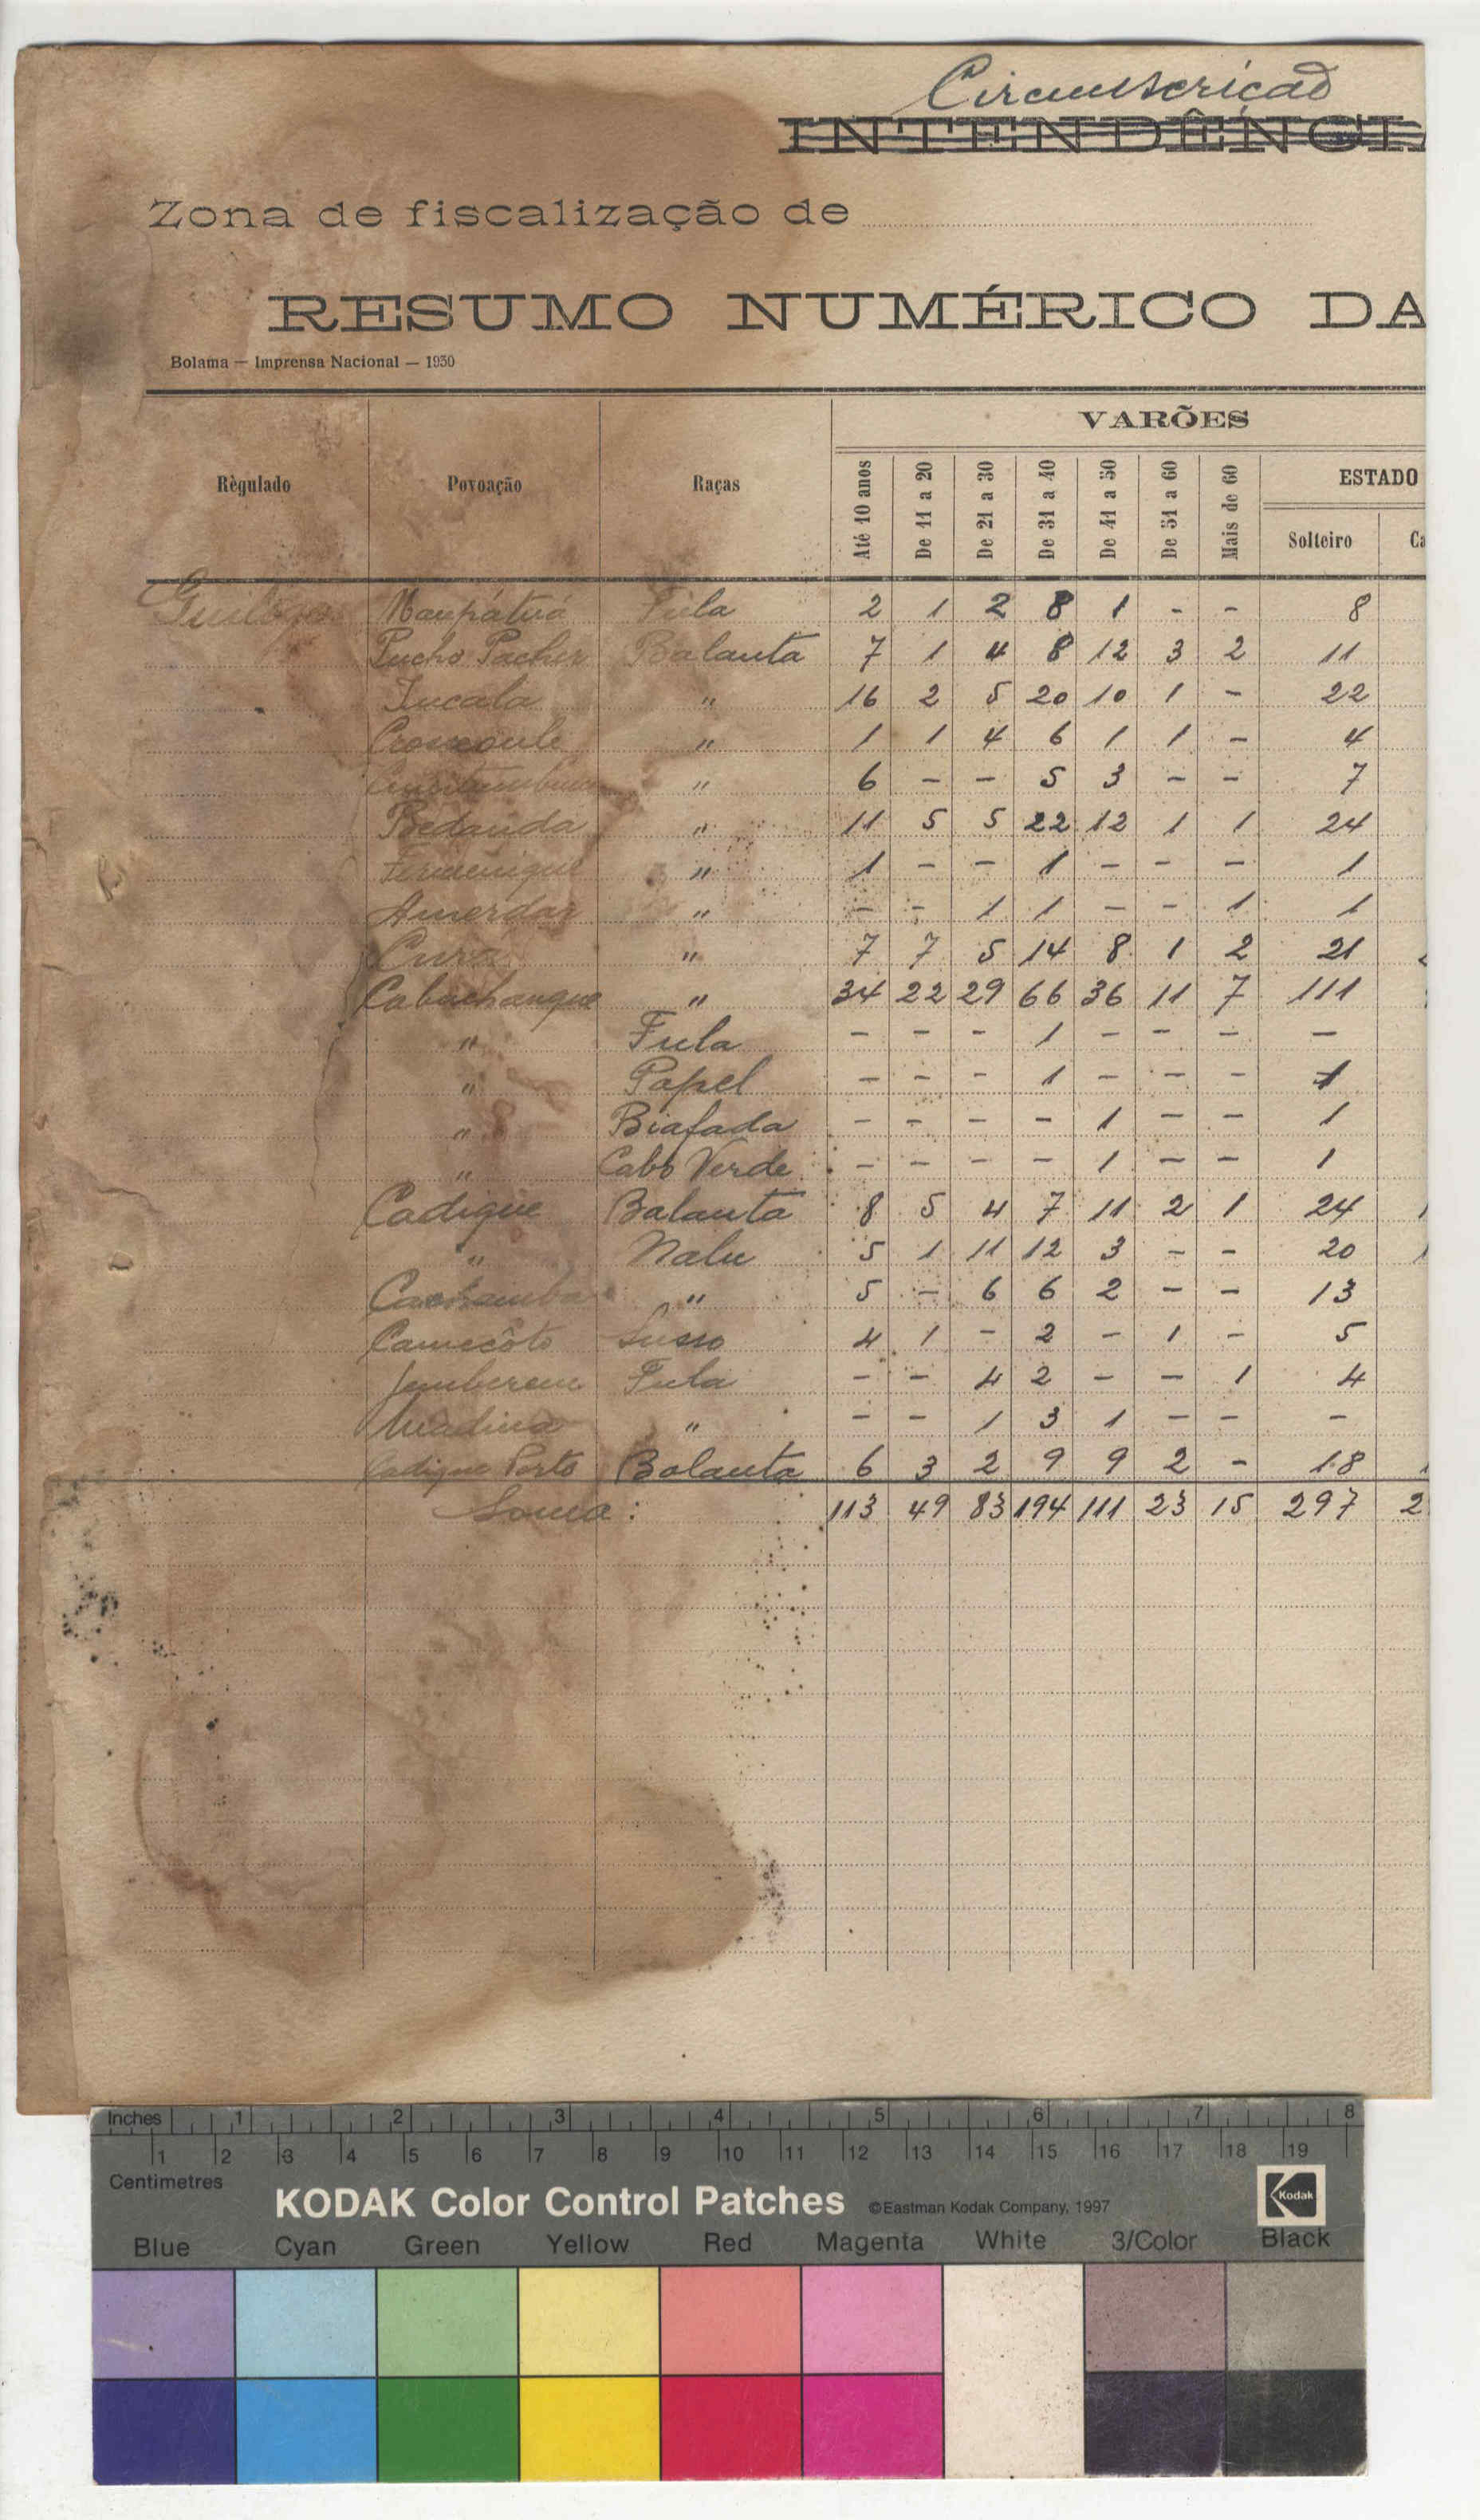 Circunscrição
INTENDÊNCI
Zona de fiscalização de
RESUMO NUMÉRICO DA
Bolama — Imprensa Nacional — 1930
VARÕES
Règulado Povoação Raças Até 10 anos De 11 a 20 De 21 a 30 De 31 a 40 De 41 a 50 De 51 a 60 Mais de 60 ESTADO
Solteiro Ca
Fula 2 1 2 8 1 - - 8
Balanta 7 1 4 8 12 3 2 11
" 16 2 5 20 10 1 - 22
" 1 1 4 6 1 1 - 4
" 6 - - 5 3 - - 7
Bedanda " 11 5 5 22 12 1 1 24
" 1 - - 1 - - - 1
Amerdar " - - 1 1 - - 1 1
" 7 7 5 14 8 1 2 21
Cabuchanque " 34 22 29 66 36 11 7 111
" Fula - - - 1 - - - -
" Papel - - - 1 - - - 1
" Biafada - - - - 1 - - 1
" Cabo Verde - - - - 1 - - 1
Cadique Balanta 8 5 4 7 11 2 1 24
" Nalu 5 1 11 12 3 - - 20
" 5 - 6 6 2 - - 13
Camecôto Susso 4 1 - 2 - 1 - 5
Jemberem Fula - - 4 2 - - 1 4
Madina " - - 1 3 1 - - -
Cadique Porto Balanta 6 3 2 9 9 2 - 18
Soma: 113 49 83 194 111 23 15 297 2
Inches 1 2 3 4 5 6 7 8
1 2 3 4 5 6 7 8 9 10 11 12 13 14 15 16 17 18 19
Centimetres
KODAK Color Control Patches ©Eastman Kodak Company, 1997 Kodak
Blue Cyan Green Yellow Red Magenta White 3/Color Black